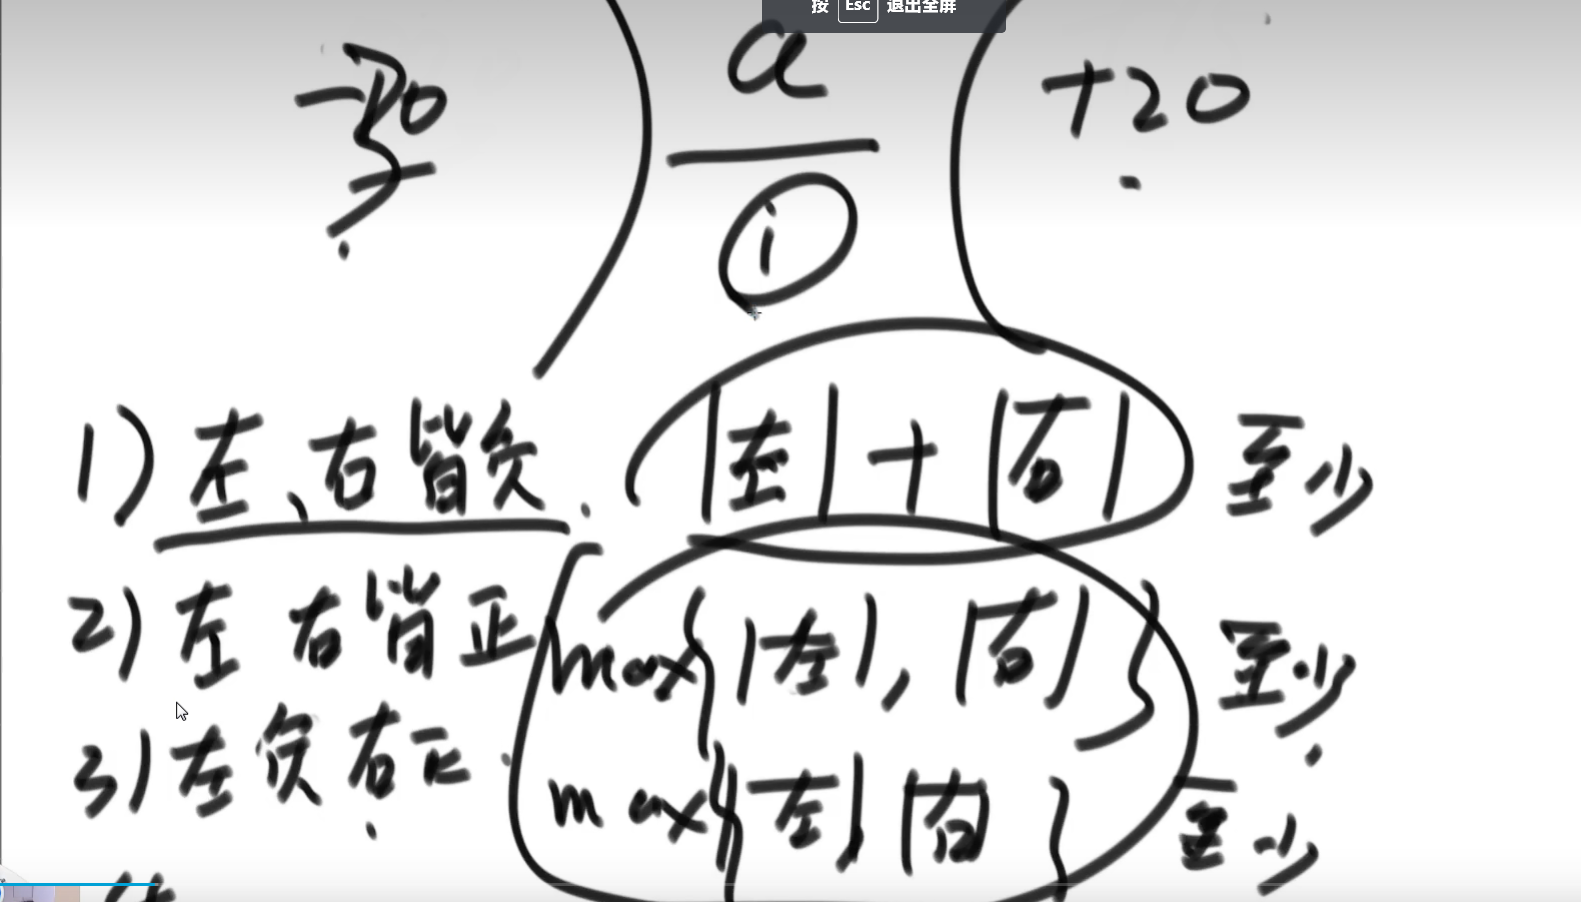 按 Esc 退出全屏
a +20
i
1) 左、右皆负. |左|+|右| 至少
2) 左 右皆正 max{|左|,|右|} 至少.
3) 左负右正. max{|左| |右|} 至少